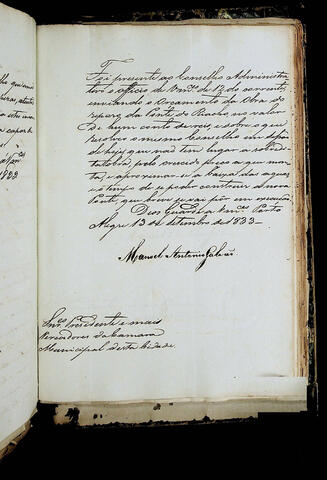 Foi presente ao Conselho Administra-
tivo o officio de Vm.ces de 12 do corrente,
enviando o Orçamento da Obra do
reparo da Ponte do Riacho no valor
de hum conto de reis, e sobre o que
resolveo o mesmo Conselho em
de hoje, que não tem lugar a
obra, pelo crescido preço a que mon-
ta, e aproximar-se a baixa das agoas
e o tempo de se poder construir a nova
Ponte, que breve se vai pôr em execução.
Deos Guarde a Vm.ces Porto
Alegre 13 de Setembro de 1833
Manoel Antonio Galvão
Snr.es Presidente e mais
Vereadores da Camara
Municipal desta Cidade.
1833